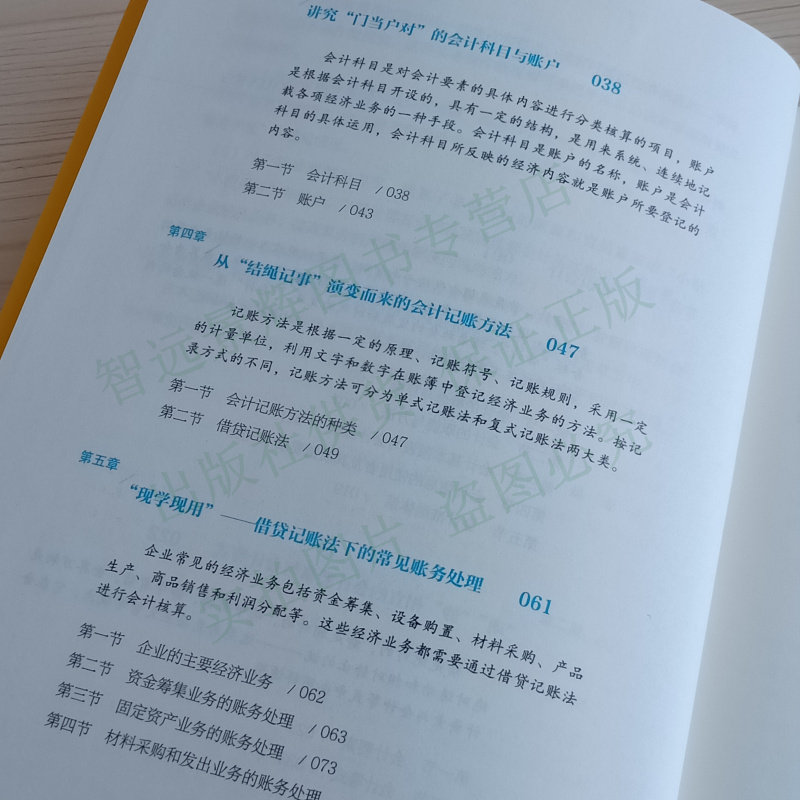 讲究“门当户对”的会计科目与账户 038
会计科目是对会计要素的具体内容进行分类核算的项目，账户
是根据会计科目开设的，具有一定的结构，是用来系统、连续地记
载各项经济业务的一种手段。会计科目是账户的名称，账户是会计
科目的具体运用，会计科目所反映的经济内容就是账户所要登记的
内容。
第一节 会计科目 / 038
第二节 账户 / 043
第四章
从“结绳记事”演变而来的会计记账方法 047
记账方法是根据一定的原理、记账符号、记账规则，采用一定
的计量单位，利用文字和数字在账簿中登记经济业务的方法。按记
录方式的不同，记账方法可分为单式记账法和复式记账法两大类。
第一节 会计记账方法的种类 / 047
第二节 借贷记账法 / 049
第五章
“现学现用”——借贷记账法下的常见账务处理 061
企业常见的经济业务包括资金筹集、设备购置、材料采购、产品
生产、商品销售和利润分配等。这些经济业务都需要通过借贷记账法
进行会计核算。
第一节 企业的主要经济业务 / 062
第二节 资金筹集业务的账务处理 / 063
第三节 固定资产业务的账务处理 / 073
第四节 材料采购和发出业务的账务处理